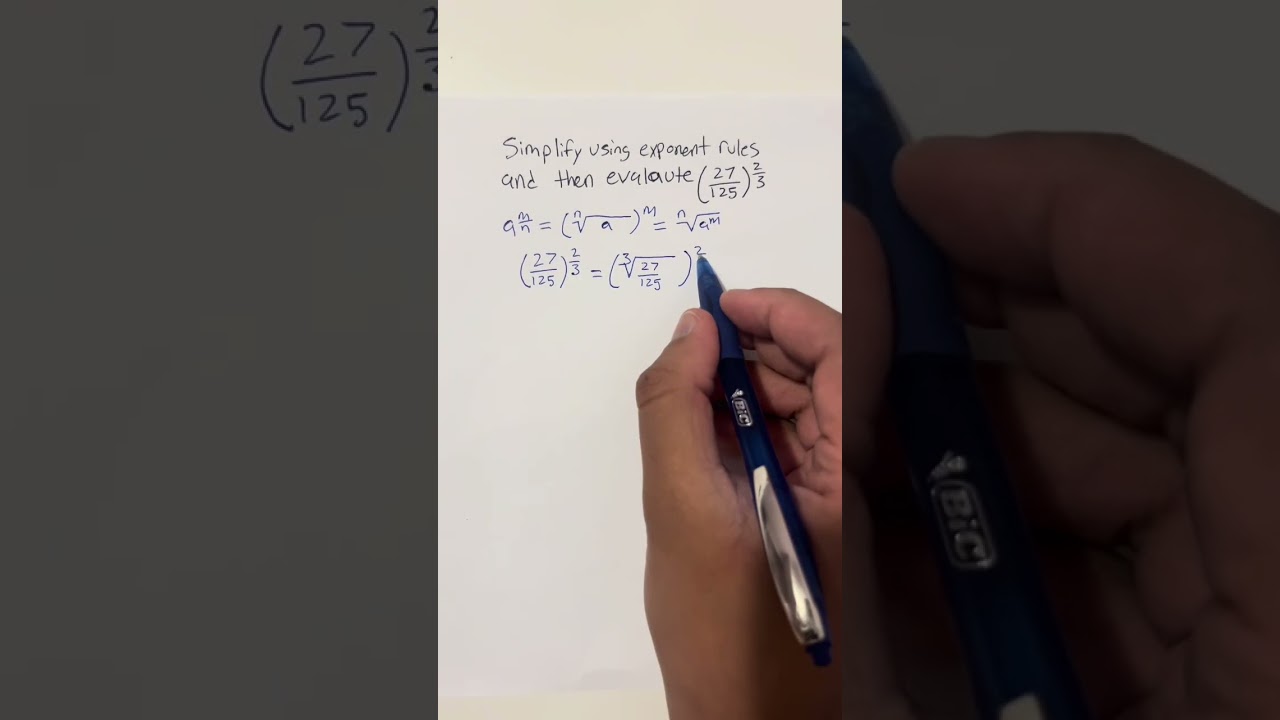 Simplify using exponent rules
and then evalaute (27/125)^(2/3)
a^(m/n) = (ⁿ√a)^m = ⁿ√(a^m)
(27/125)^(2/3) = (³√(27/125))^2
BiC